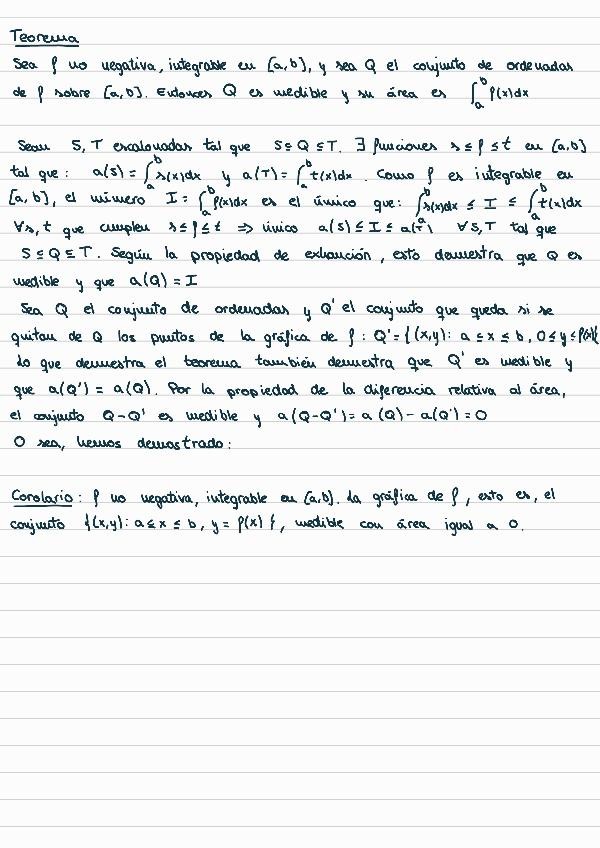 Teorema
Sea f no negativa, integrable en [a,b], y sea Q el conjunto de ordenadas
de f sobre [a,b]. Entonces Q es medible y su área es ∫_a^b f(x)dx
Sean S, T escalonadas tal que S⊆Q⊆T. ∃ funciones s≤f≤t en [a,b]
tal que: a(S) = ∫_a^b s(x)dx y a(T) = ∫_a^b t(x)dx. Como f es integrable en
[a,b], el número I = ∫_a^b f(x)dx es el único que: ∫_a^b s(x)dx ≤ I ≤ ∫_a^b t(x)dx
∀s,t que cumplen s≤f≤t ⇒ único a(S) ≤ I ≤ a(T) ∀S,T tal que
S⊆Q⊆T. Según la propiedad de exhaución, esto demuestra que Q es
medible y que a(Q) = I
Sea Q el conjunto de ordenadas y Q' el conjunto que queda si se
quitan de Q los puntos de la gráfica de f: Q' = {(x,y): a≤x≤b, 0≤y≤f(x)}
Lo que demuestra el teorema también demuestra que Q' es medible y
que a(Q') = a(Q). Por la propiedad de la diferencia relativa al área,
el conjunto Q-Q' es medible y a(Q-Q') = a(Q) - a(Q') = 0
O sea, hemos demostrado:
Corolario: f no negativa, integrable en [a,b]. La gráfica de f, esto es, el
conjunto {(x,y): a≤x≤b, y = f(x)}, medible con área igual a 0.